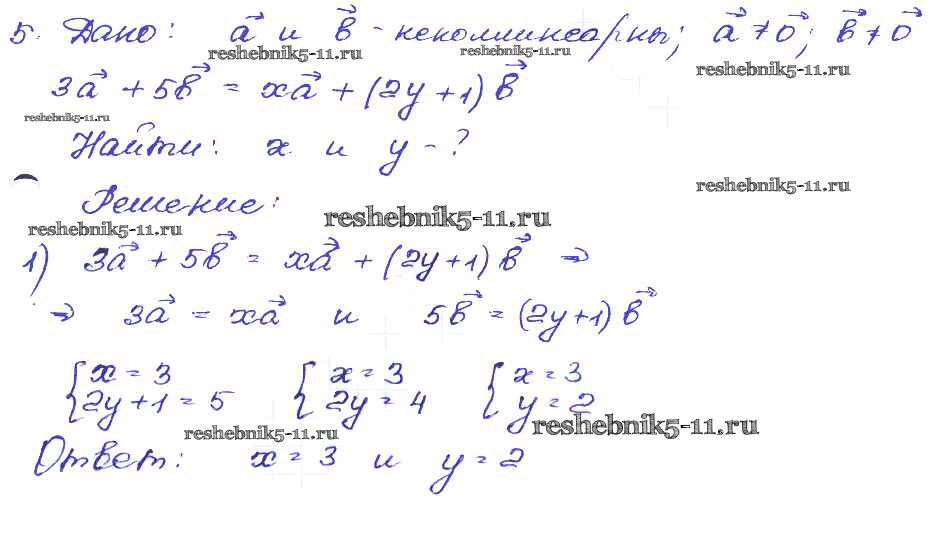 5. Дано: a⃗ и b⃗ - неколлинеарны; a⃗ ≠ 0⃗; b⃗ ≠ 0⃗
reshebnik5-11.ru reshebnik5-11.ru reshebnik5-11.ru
3a⃗ + 5b⃗ = xa⃗ + (2y + 1) b⃗
reshebnik5-11.ru
Найти: x и y - ?
reshebnik5-11.ru
Решение:
reshebnik5-11.ru reshebnik5-11.ru
1) 3a⃗ + 5b⃗ = xa⃗ + (2y + 1) b⃗ ⇒
⇒ 3a⃗ = xa⃗ и 5b⃗ = (2y + 1) b⃗
{ x = 3 { x = 3 { x = 3
2y + 1 = 5 2y = 4 y = 2
reshebnik5-11.ru reshebnik5-11.ru
Ответ: x = 3 и y = 2